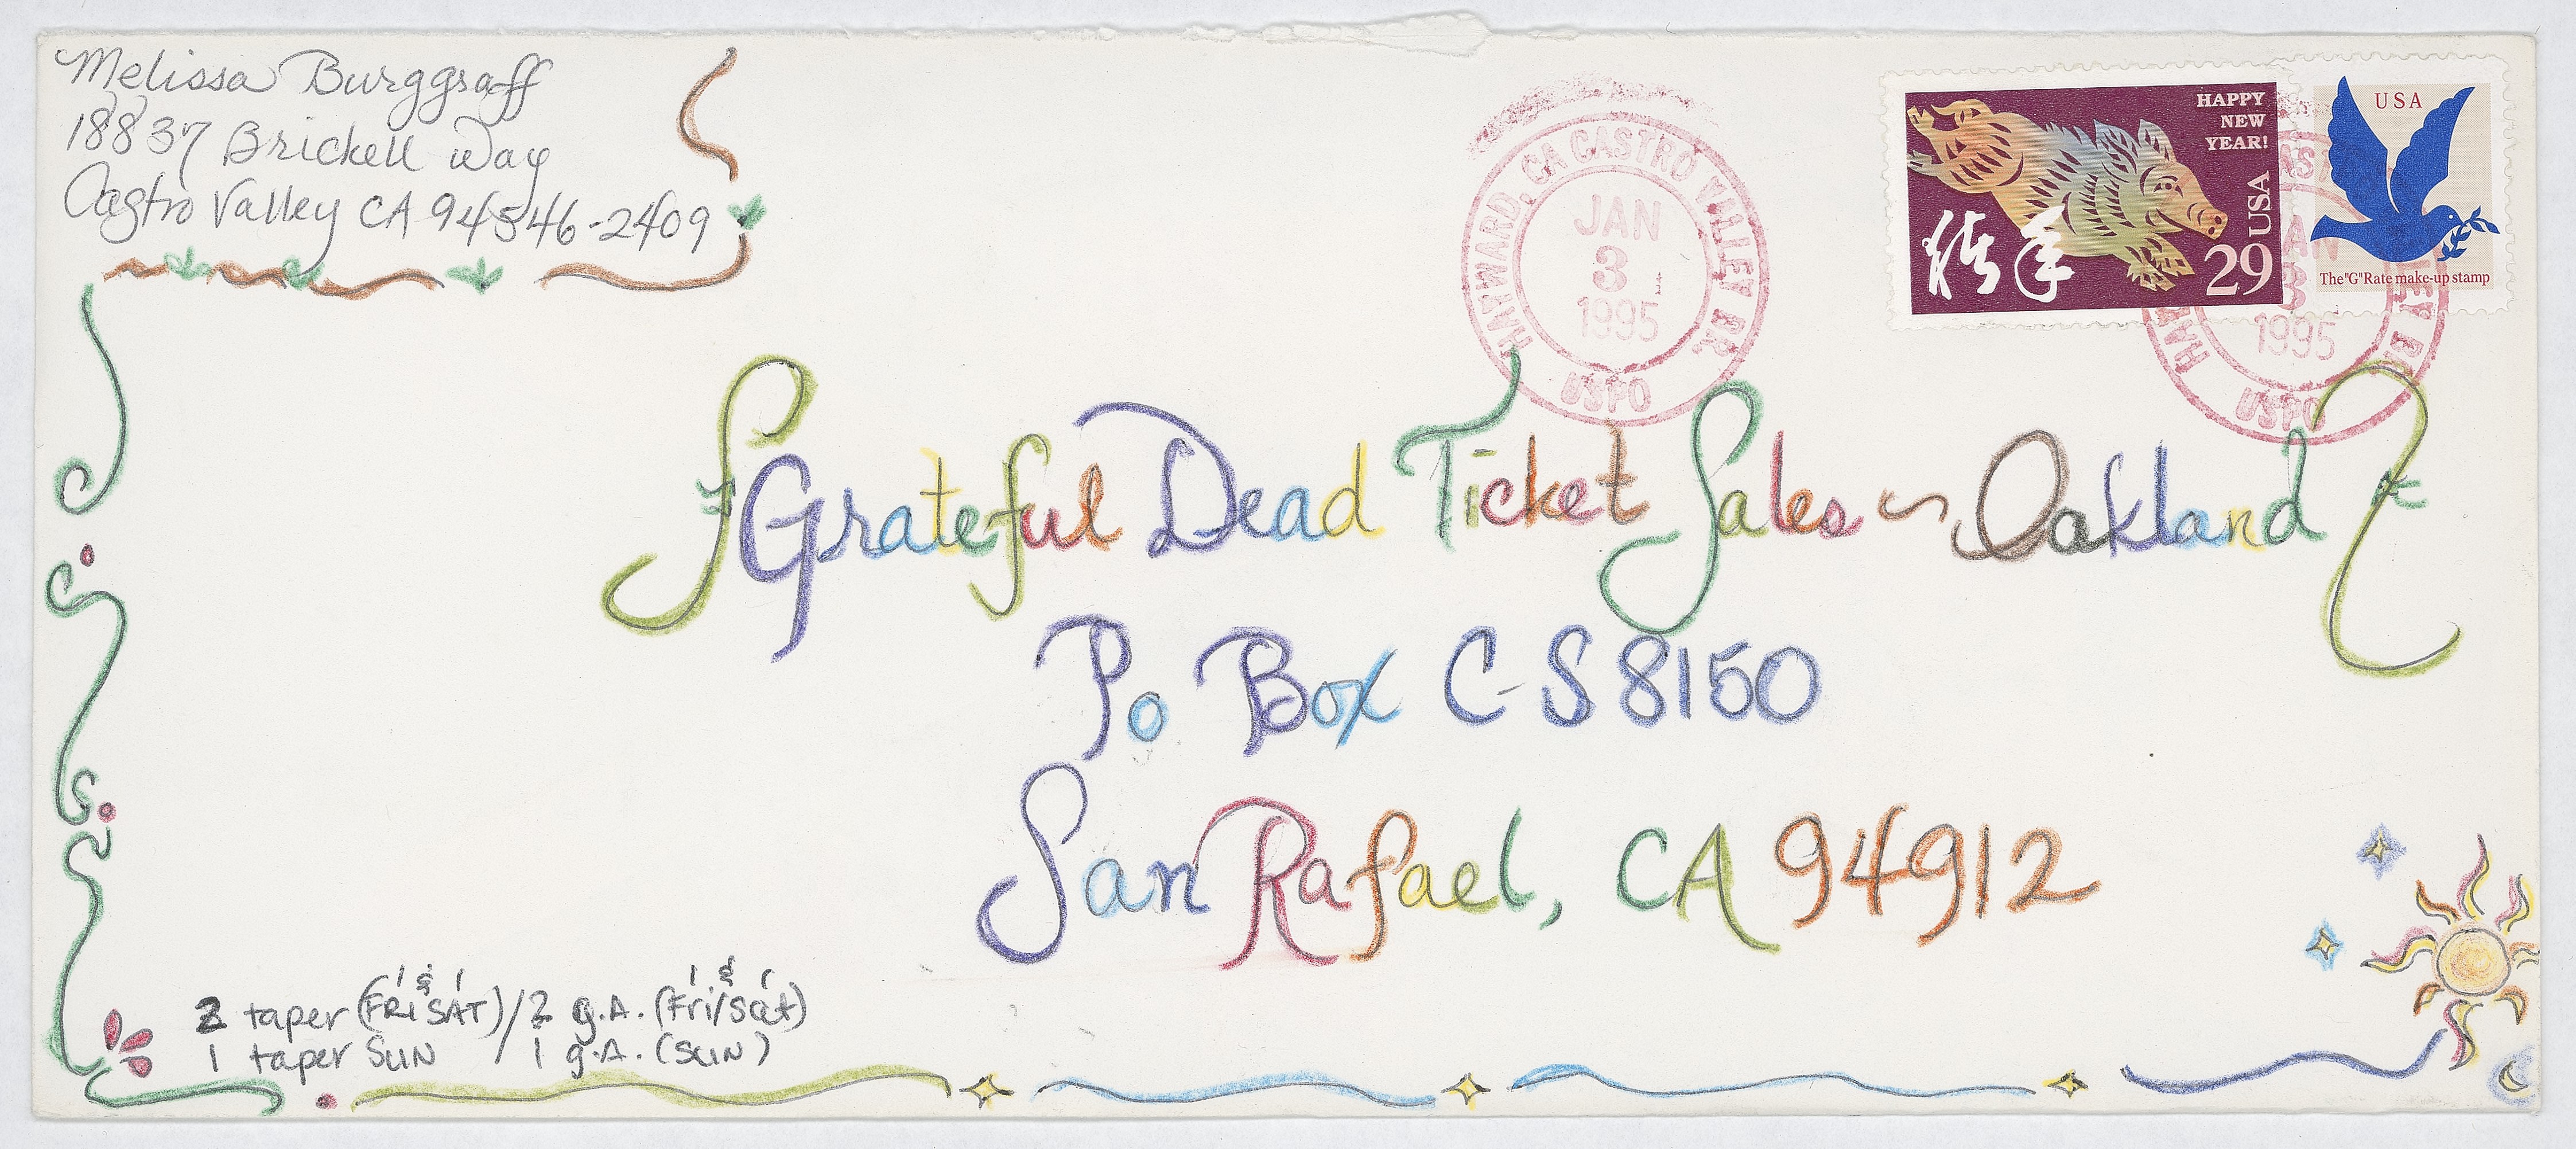 Melissa Burggraff
18837 Brickell Way
Castro Valley CA 94546-2409
HAYWARD, CA CASTRO VALLEY BR
JAN
3
1995
USPO
HAPPY
NEW
YEAR!
29 USA
USA
The "G" Rate make-up stamp
JAN
3
1995
USPO
Grateful Dead Ticket Sales ~ Oakland
Po Box C-S 8150
San Rafael, CA 94912
1 & 1 1 & 1
2 taper (FRI SAT) / 2 g.A. (Fri/Sat)
1 taper SUN / 1 g.A. (SUN)